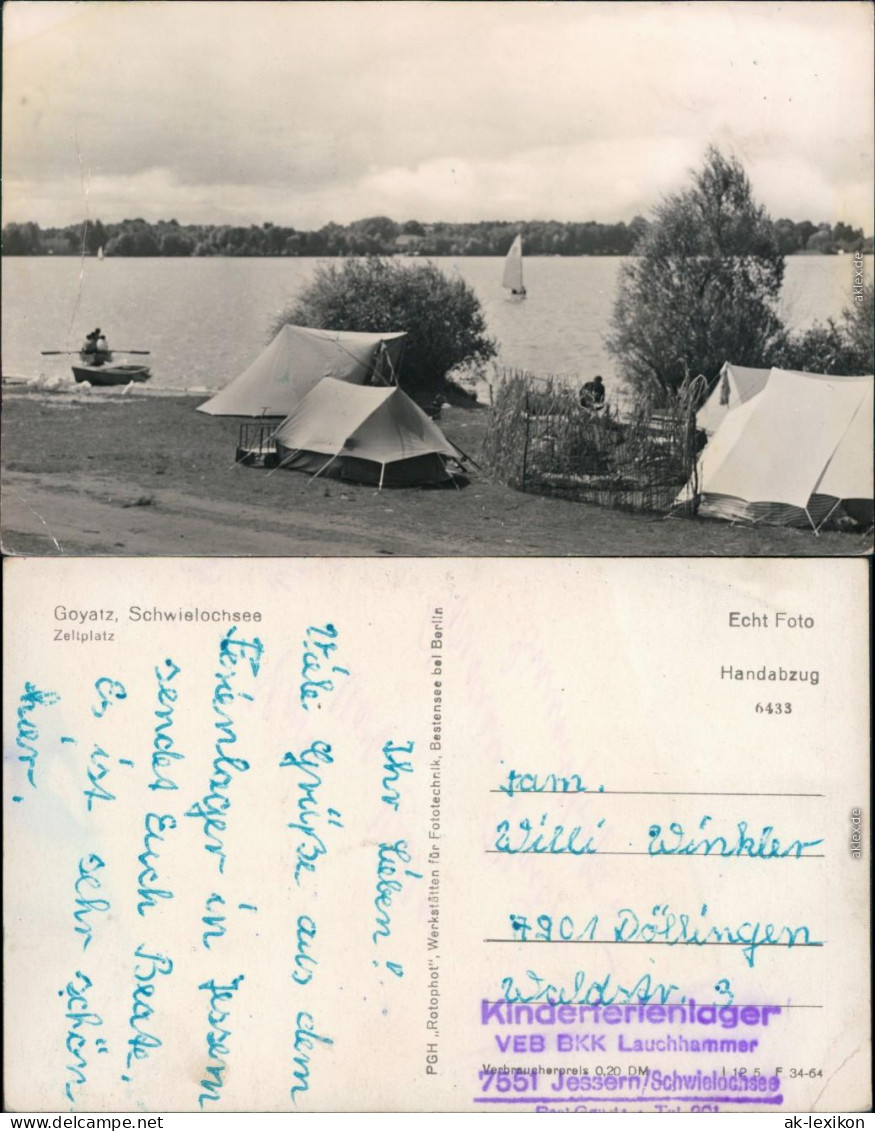 aklex.de
Goyatz, Schwielochsee
Zeltplatz
Echt Foto
Handabzug
6433
Ihr Lieben!
Viele Grüße aus dem
Ferienlager in Jessern
sendet Euch Beate.
Es ist sehr schön
hier.
PGH „Rotophot", Werkstätten für Fototechnik, Bestensee bei Berlin
Fam.
Willi Winkler
7901 Döllingen
Waldstr. 3
Kinderferienlager
VEB BKK Lauchhammer
Verbraucherpreis 0,20 DM I 12 5 F 34-64
7551 Jessern/Schwielochsee
aklex.de
ak-lexikon